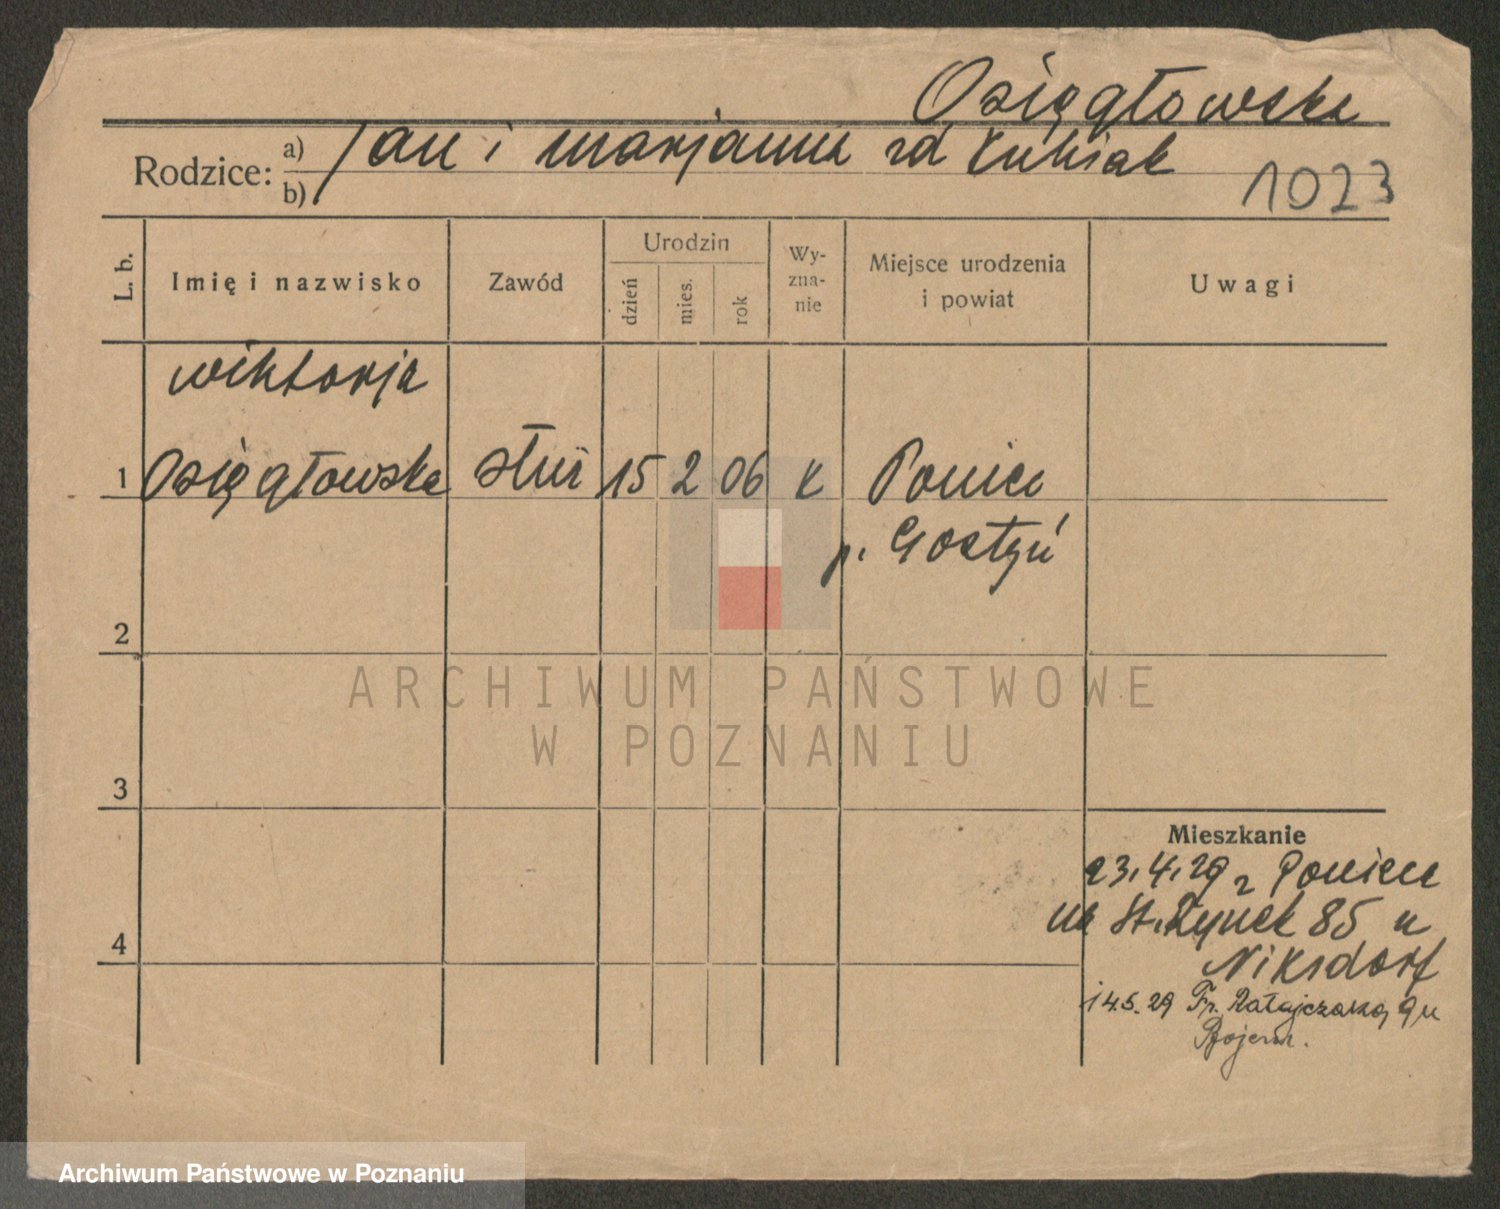 Osięgłowska
Rodzice: a) Jan i Marjanna zd Kubiak
b)
1023
L. b.
Imię i nazwisko
Zawód
Urodzin
dzień
mies.
rok
Wy-
zna-
nie
Miejsce urodzenia
i powiat
Uwagi
Wiktorja
1 Osięgłowska służ 15 2 06 K Poniec
p. Gostyń
2
3
4
Mieszkanie
23.4.29 z Poniec
na St. Rynek 85 u
Niksdorf
14.5.29 Fr. Ratajczaka 9 u
ARCHIWUM PAŃSTWOWE
W POZNANIU
Archiwum Państwowe w Poznaniu